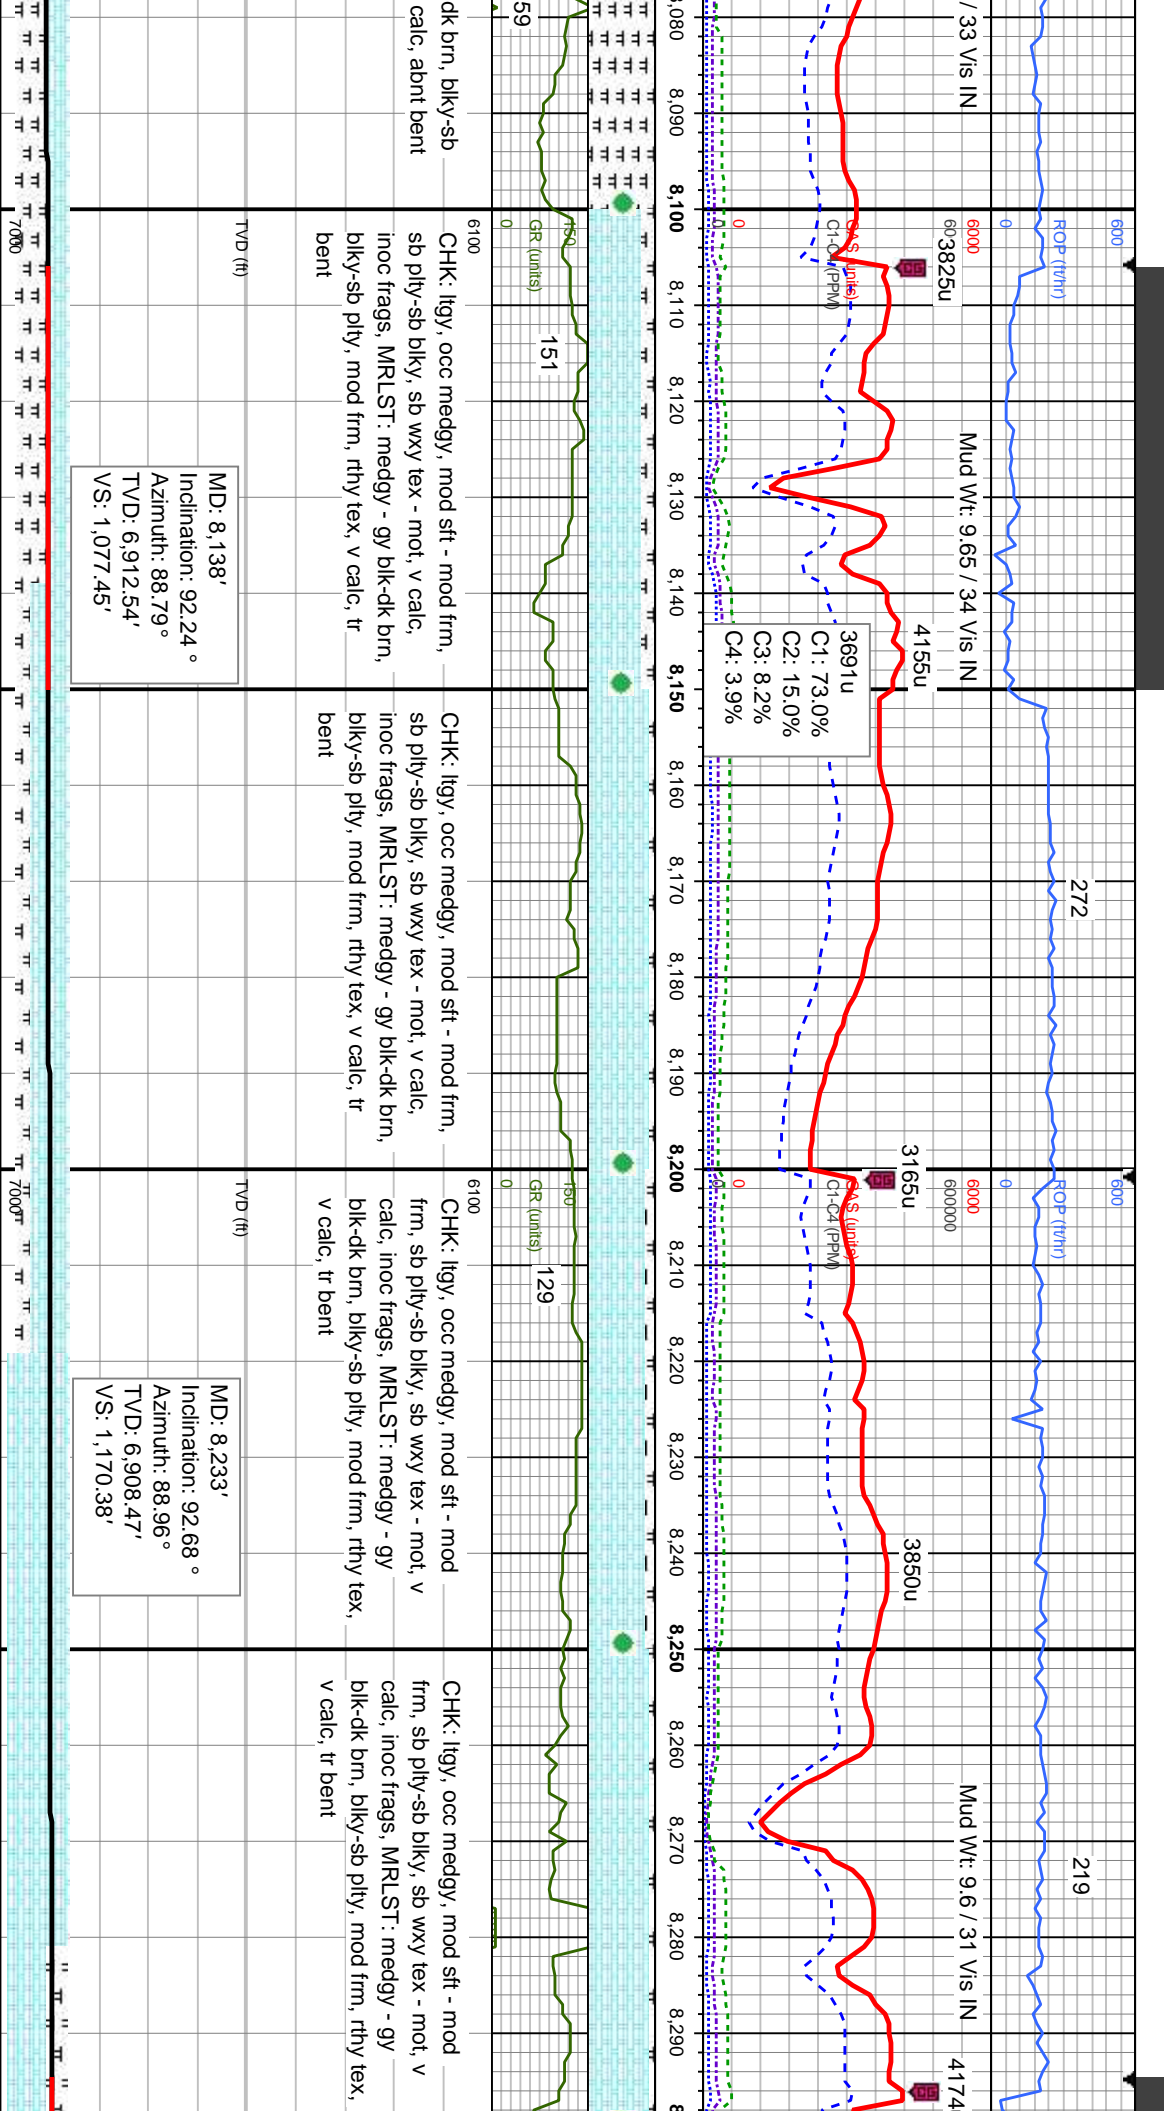 / 33 Vis IN
Mud Wt: 9.65 / 34 Vis IN
Mud Wt: 9.6 / 31 Vis IN
600
ROP (ft/hr)
0
272
600
ROP (ft/hr)
0
219
6000
3825u
GAS (units)
C1-C4 (PPM)
0
4155u
3691u
C1: 73.0%
C2: 15.0%
C3: 8.2%
C4: 3.9%
3165u
6000
600000
GAS (units)
C1-C4 (PPM)
0
3850u
4174
8,080
8,090
8,100
8,110
8,120
8,130
8,140
8,150
8,160
8,170
8,180
8,190
8,200
8,210
8,220
8,230
8,240
8,250
8,260
8,270
8,280
8,290
59
150
GR (units)
0
151
150
GR (units)
0
129
dk brn, blky-sb
calc, abnt bent
6100
CHK: ltgy, occ medgy, mod sft - mod frm,
sb plty-sb blky, sb wxy tex - mot, v calc,
inoc frags, MRLST: medgy - gy blk-dk brn,
blky-sb plty, mod frm, rthy tex, v calc, tr
bent
CHK: ltgy, occ medgy, mod sft - mod frm,
sb plty-sb blky, sb wxy tex - mot, v calc,
inoc frags, MRLST: medgy - gy blk-dk brn,
blky-sb plty, mod frm, rthy tex, v calc, tr
bent
6100
CHK: ltgy, occ medgy, mod sft - mod
frm, sb plty-sb blky, sb wxy tex - mot, v
calc, inoc frags, MRLST: medgy - gy
blk-dk brn, blky-sb plty, mod frm, rthy tex,
v calc, tr bent
CHK: ltgy, occ medgy, mod sft - mod
frm, sb plty-sb blky, sb wxy tex - mot, v
calc, inoc frags, MRLST: medgy - gy
blk-dk brn, blky-sb plty, mod frm, rthy tex,
v calc, tr bent
TVD (ft)
7000
MD: 8,138'
Inclination: 92.24 °
Azimuth: 88.79 °
TVD: 6,912.54'
VS: 1,077.45'
TVD (ft)
7000
MD: 8,233'
Inclination: 92.68 °
Azimuth: 88.96 °
TVD: 6,908.47'
VS: 1,170.38'